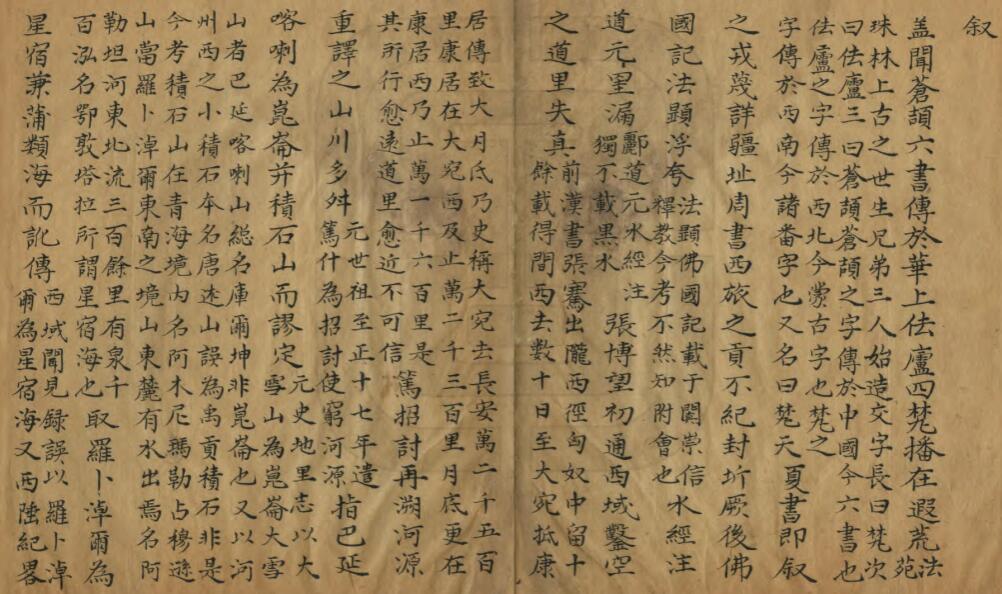 叙
盖聞蒼頡六書傳於華上佉盧四梵播在遐荒法苑
珠林上古之世生兄弟三人始造文字長曰梵次
曰佉盧三曰蒼頡蒼頡之字傳於中國今六書也
佉盧之字傳於西北今蒙古字也梵之
字傳於西南今諸番字也又名曰梵天夏書即叙
之戎蔑詳疆址周書西旅之貢不紀封圻厥後佛
國記法顯浮夸法顯佛國記載于闐崇信釋教今考不然知附會也水經注
道元罣漏酈道元水經注獨不載黑水張博望初通西域鑿空
之道里失真前漢書張騫出隴西徑匈奴中留十餘載得間西去數十日至大宛抵康
居傳致大月氐乃史稱大宛去長安萬二千五百
里康居在大宛西及止萬二千三百里月底更在
康居西乃止萬一千六百里是
其所行愈遠道里愈近不可信篤招討再溯河源
重譯之山川多舛元世祖至正十七年遣篤什為招討使窮河源指巴延
喀喇為崑崙并積石山而謬定元史地里志以大雪山為崑崙大雪
山者巴延喀喇山緫名庫爾坤非崑崙也又以河
州西之小積石本名唐述山誤為禹貢積石非是
今考積石山在青海境內名阿木尼瑪勒占穆遜
山當羅卜淖爾東南之境山東麓有水出焉名阿
勒坦河東北流三百餘里有泉千
百泓名鄂敦塔拉所謂星宿海也取羅卜淖爾為
星宿兼蒲類海而訛傳西域聞見録誤以羅卜淖爾為星宿海又西陲紀畧